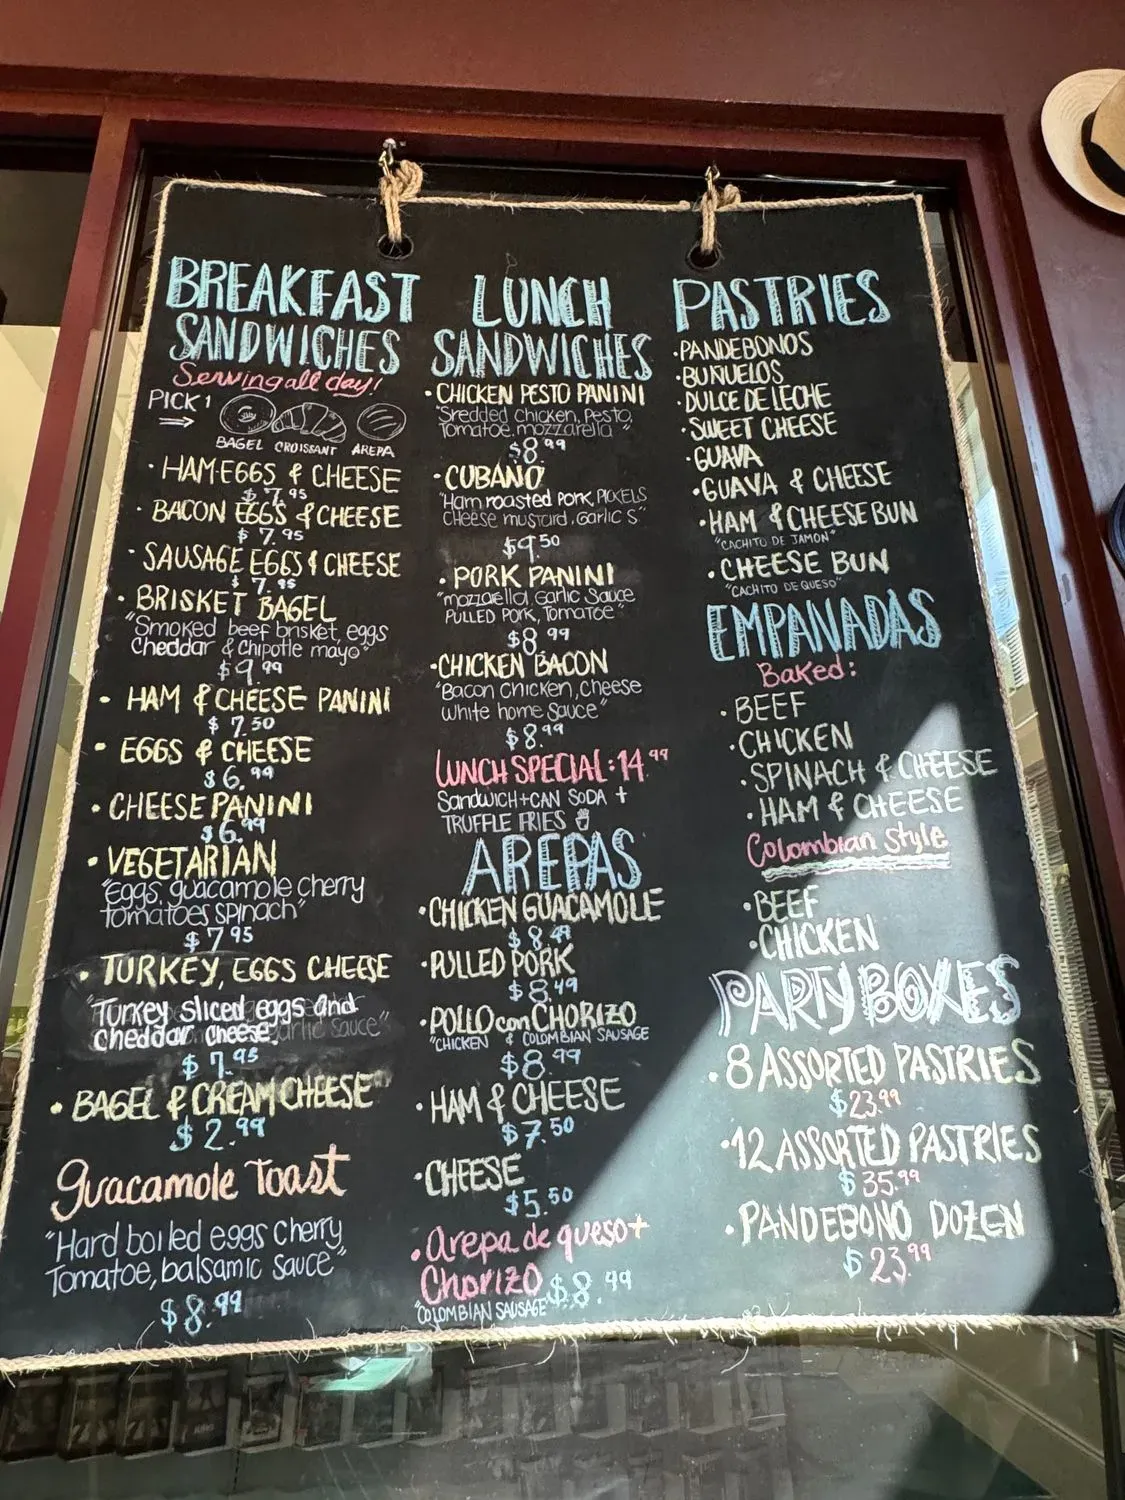 BREAKFAST
SANDWICHES
Serving all day!
PICK 1
BAGEL CROISSANT AREPA
· HAM EGGS & CHEESE
$7.95
· BACON EGGS & CHEESE
$7.95
· SAUSAGE EGGS & CHEESE
$7.95
· BRISKET BAGEL
"Smoked beef brisket, eggs
Cheddar & Chipotle mayo"
$9.99
· HAM & CHEESE PANINI
$7.50
· EGGS & CHEESE
$6.99
· CHEESE PANINI
$6.99
· VEGETARIAN
"Eggs, guacamole cherry
tomatoes spinach"
$7.95
· TURKEY, EGGS CHEESE
"Turkey sliced eggs and
cheddar cheese,
$7.95
· BAGEL & CREAM CHEESE
$2.99
guacamole Toast
"Hard boiled eggs cherry
Tomatoe, balsamic sauce"
$8.99
LUNCH
SANDWICHES
· CHICKEN PESTO PANINI
"Sredded chicken, Pesto,
Tomatoe, mozzarella"
$8.99
· CUBANO
"Ham, roasted Pork, PICKELS
Cheese mustard, Garlic S"
$9.50
· PORK PANINI
"mozzarella, Garlic Sauce
PULLED Pork, Tomatoe"
$8.99
· CHICKEN BACON
"Bacon Chicken, cheese
white home Sauce"
$8.99
LUNCH SPECIAL: 14.99
SandWICH+CAN SODA +
TRUFFLE FRIES
AREPAS
· CHICKEN GUACAMOLE
· PULLED PORK
$8.49
· POLLO con CHORIZO
"CHICKEN & COLOMBIAN SAUSAGE
$8.99
· HAM & CHEESE
$7.50
· CHEESE
$5.50
· arepa de queso +
Chorizo $8.99
"COLOMBIAN SAUSAGE"
PASTRIES
· PANDEBONOS
· BUÑUELOS
· DULCE DE LECHE
· SWEET CHEESE
· GUAVA
· GUAVA & CHEESE
· HAM & CHEESE BUN
"CACHITO DE JAMON"
· CHEESE BUN
"CACHITO DE QUESO"
EMPANADAS
Baked:
· BEEF
· CHICKEN
· SPINACH & CHEESE
· HAM & CHEESE
Colombian Style
· BEEF
· CHICKEN
PARTY BOXES
· 8 ASSORTED PASTRIES
$23.99
· 12 ASSORTED PASTRIES
$35.99
· PANDEBONO DOZEN
$23.99